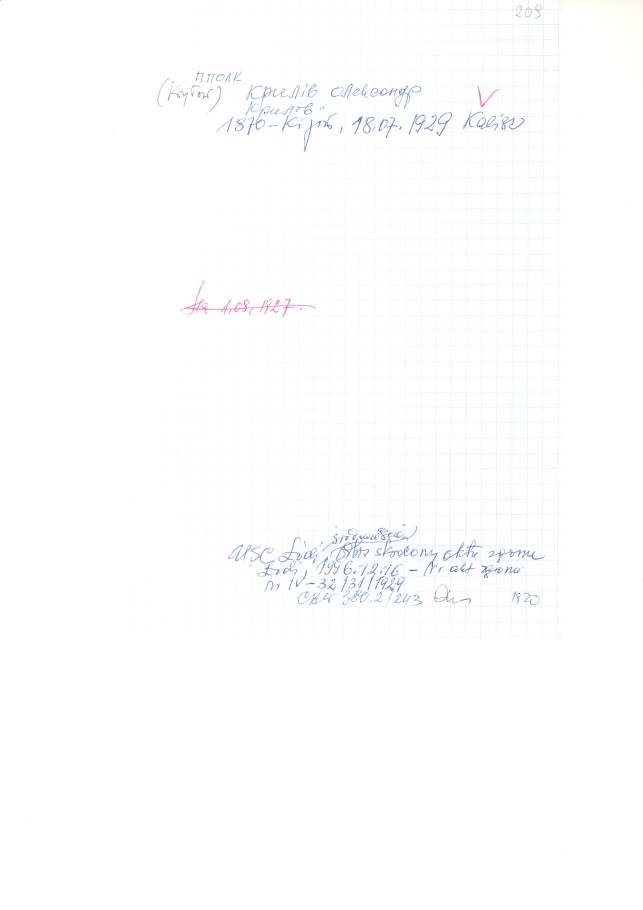 209
ППОЛК
Крилів Олександр
Крилов
1870 – Kijów, 18.07.1929 Kalisz
1.08.1927.
śródmieście
USC Łódź, Odpis skrócony aktu zgonu
Łódź, 1996.12.16 – Nr akt zgonu
nr IV – 32/31/1929
380.2/243 1920